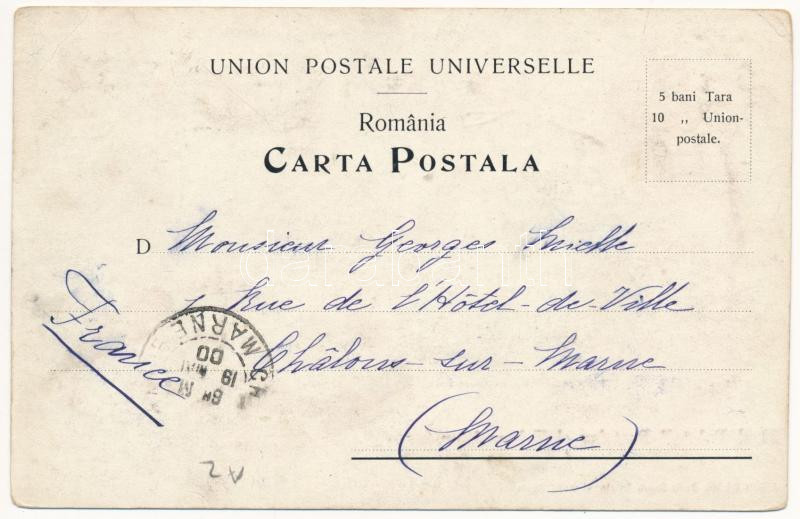 UNION POSTALE UNIVERSELLE
România
CARTA POSTALA
5 bani Tara
10 „ Union-
postale.
D Monsieur Georges
Rue de l'Hôtel-de-Ville
Châlons-sur-Marne
(Marne)
France
MARNE
19
00
darabanth